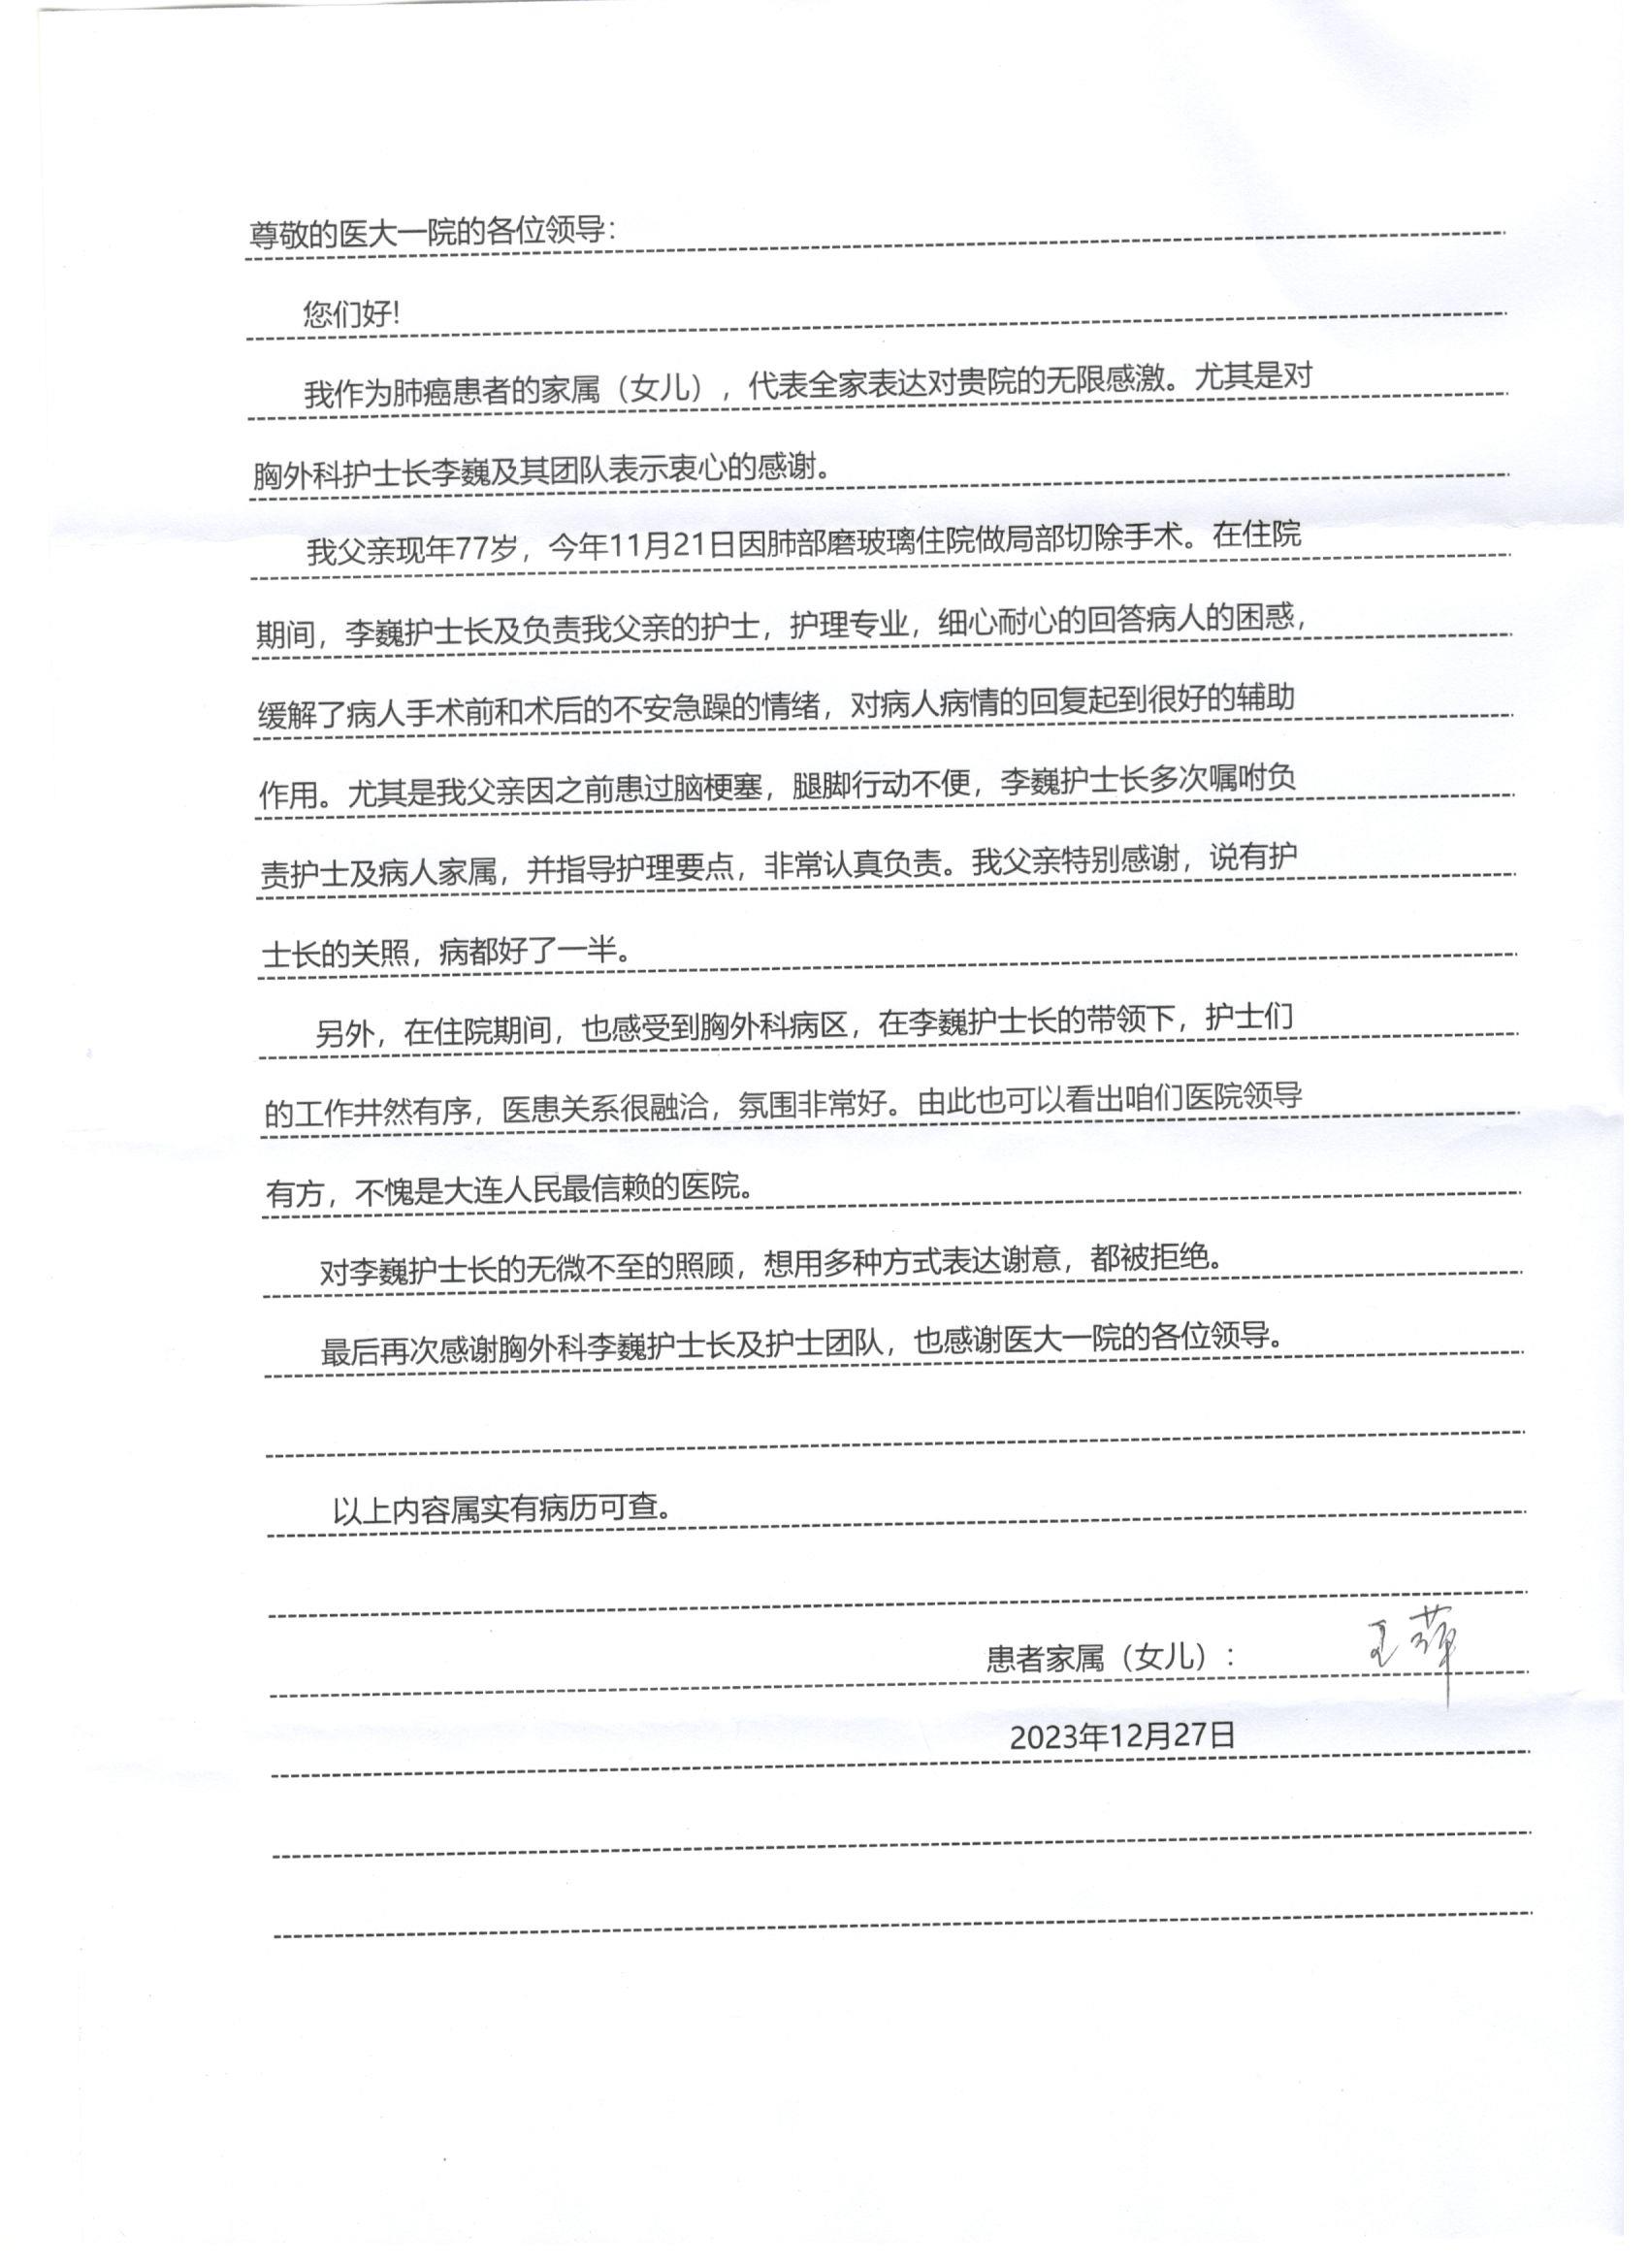 尊敬的医大一院的各位领导：
您们好！
我作为肺癌患者的家属（女儿），代表全家表达对贵院的无限感激。尤其是对
胸外科护士长李巍及其团队表示衷心的感谢。
我父亲现年77岁，今年11月21日因肺部磨玻璃住院做局部切除手术。在住院
期间，李巍护士长及负责我父亲的护士，护理专业，细心耐心的回答病人的困惑，
缓解了病人手术前和术后的不安急躁的情绪，对病人病情的回复起到很好的辅助
作用。尤其是我父亲因之前患过脑梗塞，腿脚行动不便，李巍护士长多次嘱咐负
责护士及病人家属，并指导护理要点，非常认真负责。我父亲特别感谢，说有护
士长的关照，病都好了一半。
另外，在住院期间，也感受到胸外科病区，在李巍护士长的带领下，护士们
的工作井然有序，医患关系很融洽，氛围非常好。由此也可以看出咱们医院领导
有方，不愧是大连人民最信赖的医院。
对李巍护士长的无微不至的照顾，想用多种方式表达谢意，都被拒绝。
最后再次感谢胸外科李巍护士长及护士团队，也感谢医大一院的各位领导。
以上内容属实有病历可查。
患者家属（女儿）： 王
2023年12月27日